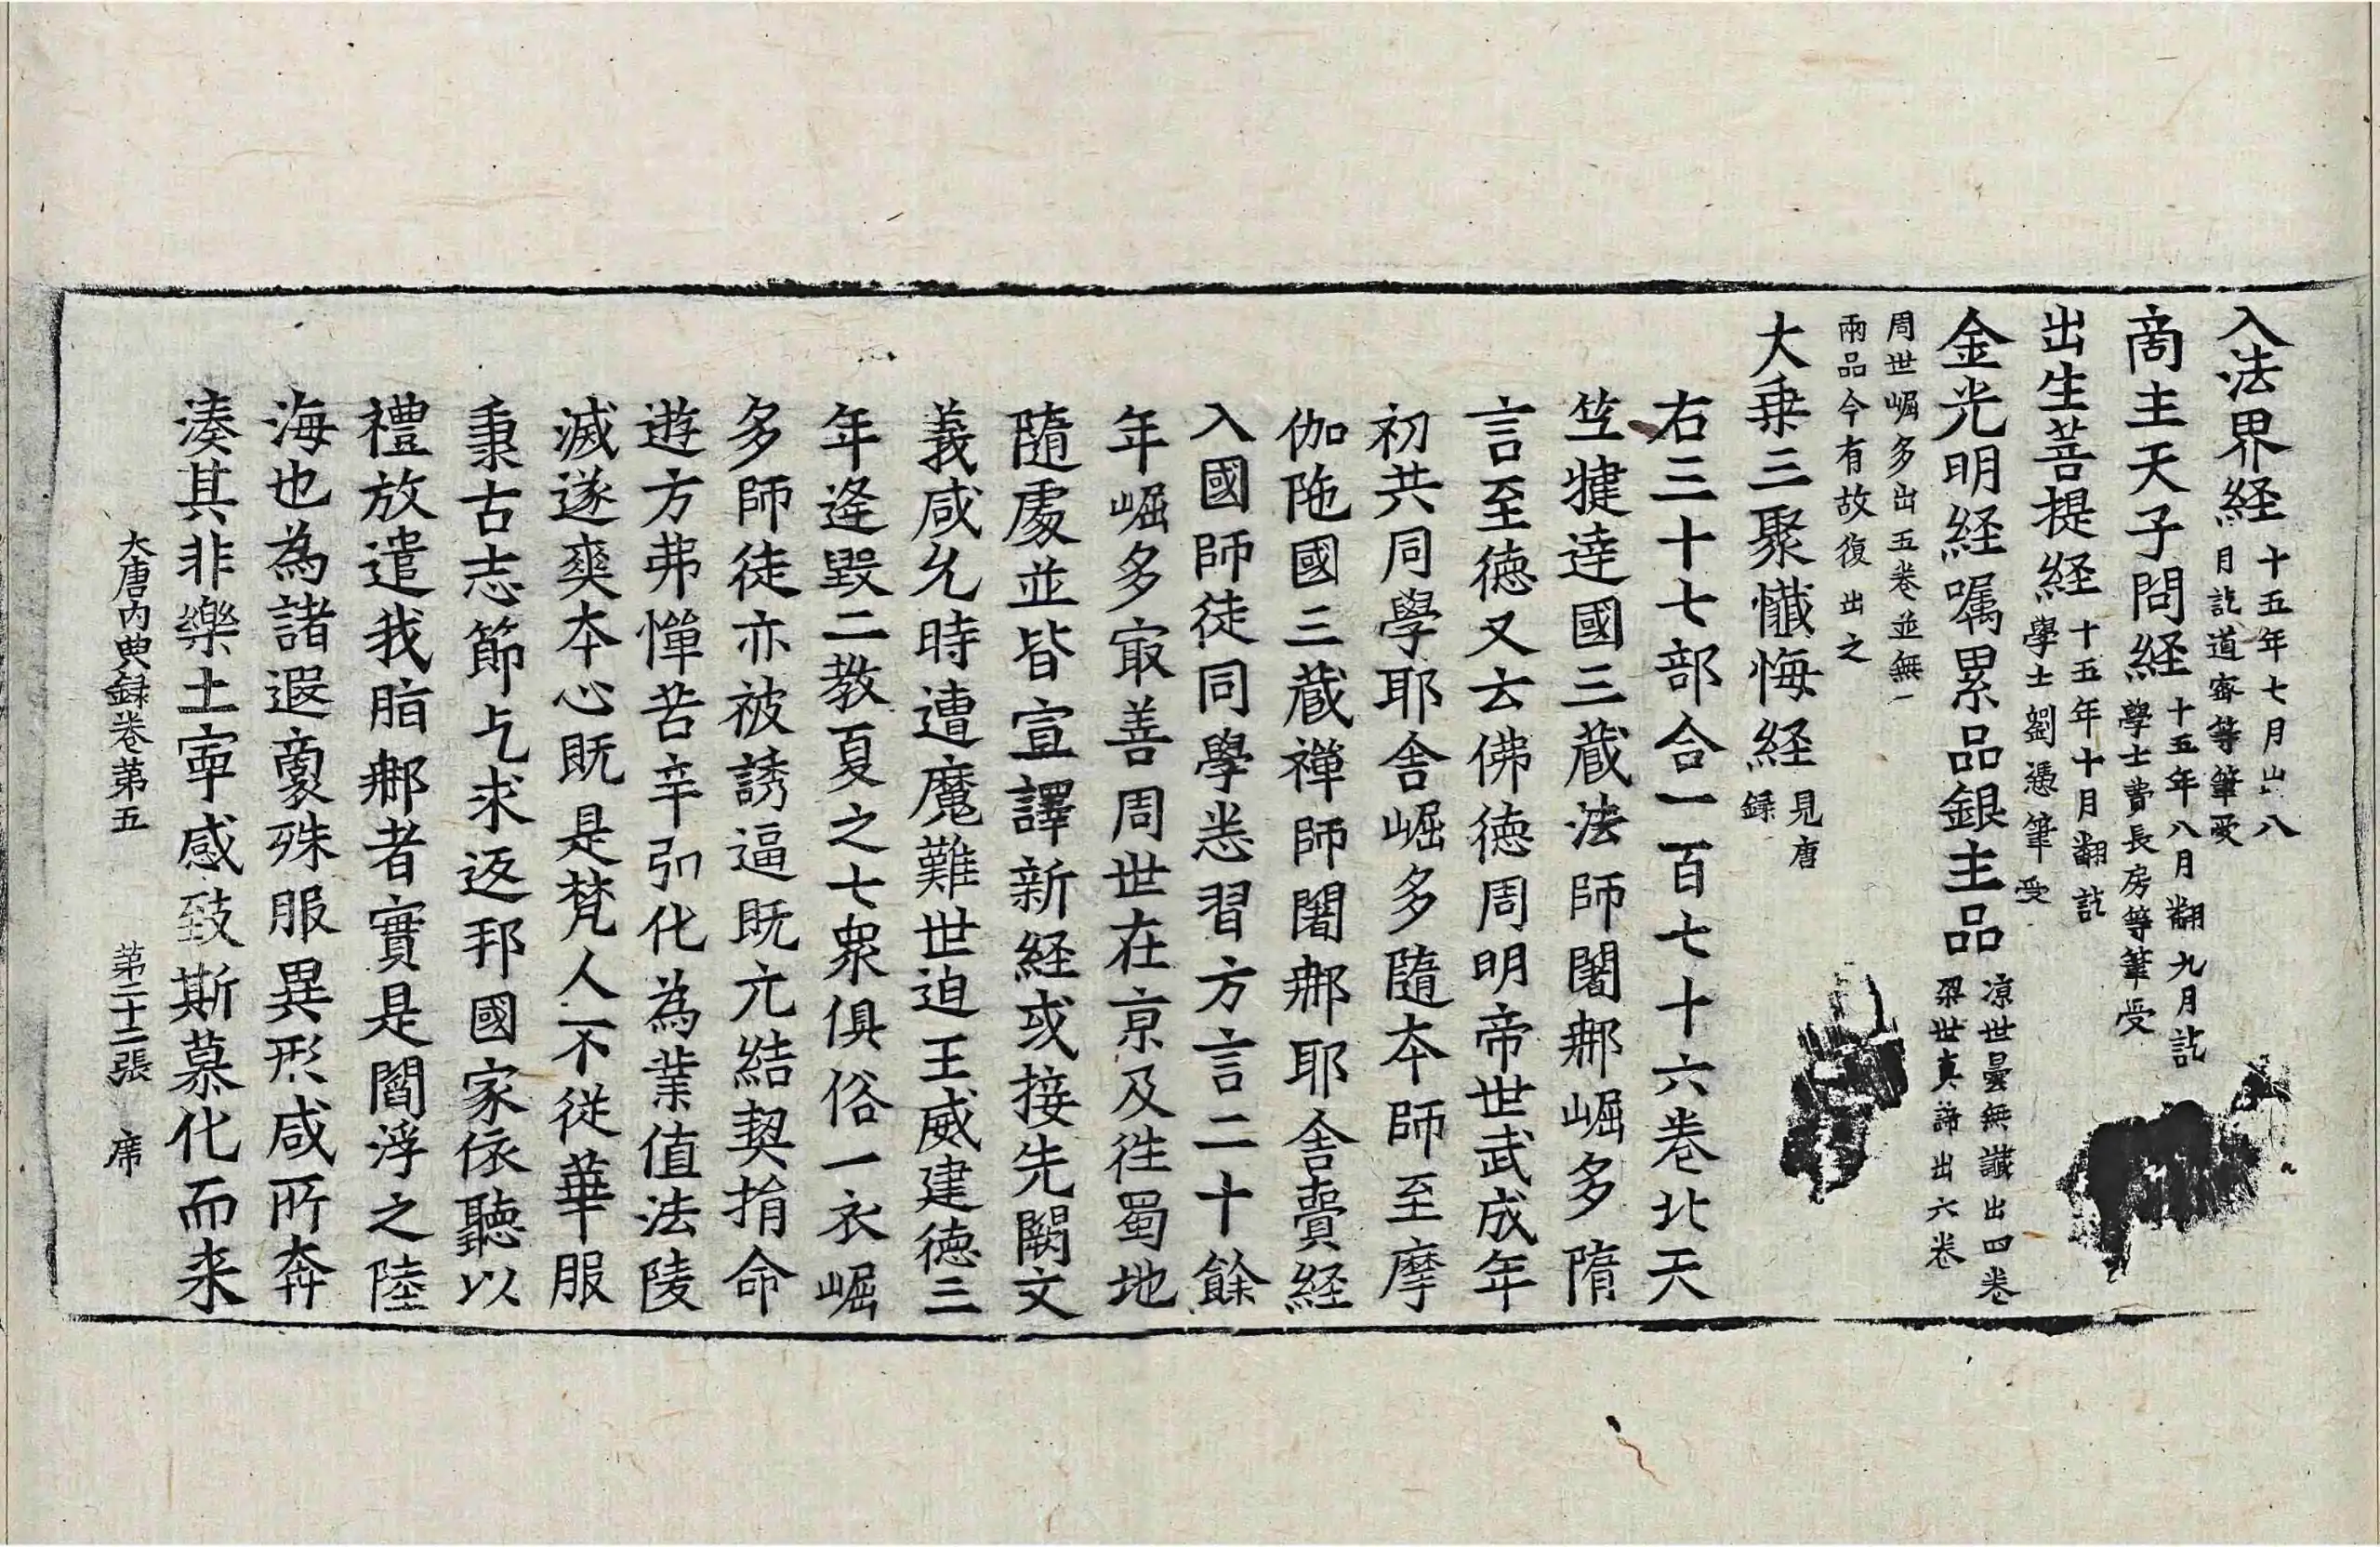 入法界経十五年七月出八月訖道密等筆受
啇主天子問経十五年八月翻九月訖學士費長房等筆受
出生菩提経十五年十月翻訖學士劉憑筆受
金光明経嘱累品銀主品凉世曇無讖出四卷梁世真諦出六卷
周世崛多出五卷並無一兩品今有故復出之
大乗三聚懺悔経見唐録
右三十七部合一百七十六卷北天
笁揵達國三蔵法師闍𨚗崛多隋
言至徳又云佛徳周明帝世武成年
初共同學耶舎崛多隨本師至摩
伽陁國三蔵禪師闍𨚗耶舎賷経
入國師徒同學悉習方言二十餘
年崛多㝡善周世在京及徃蜀地
隨處並皆宣譯新経或接先闕文
義咸允時遭魔難世迫王威建徳三
年逄毀二教夏之七衆俱俗一衣崛
多師徒亦被誘逼既元結契捐命
遊方弗憚苦辛引化為業值法陵
滅遂爽本心既是梵人不從華服
秉古志節乞求返邦國家依聽以
禮放遣我脂𨚗者實是閻浮之陸
海也為諸遐裔殊服異形咸所奔
湊其非樂土寧感致斯慕化而来
大唐内典録卷第五　第二十三張　席